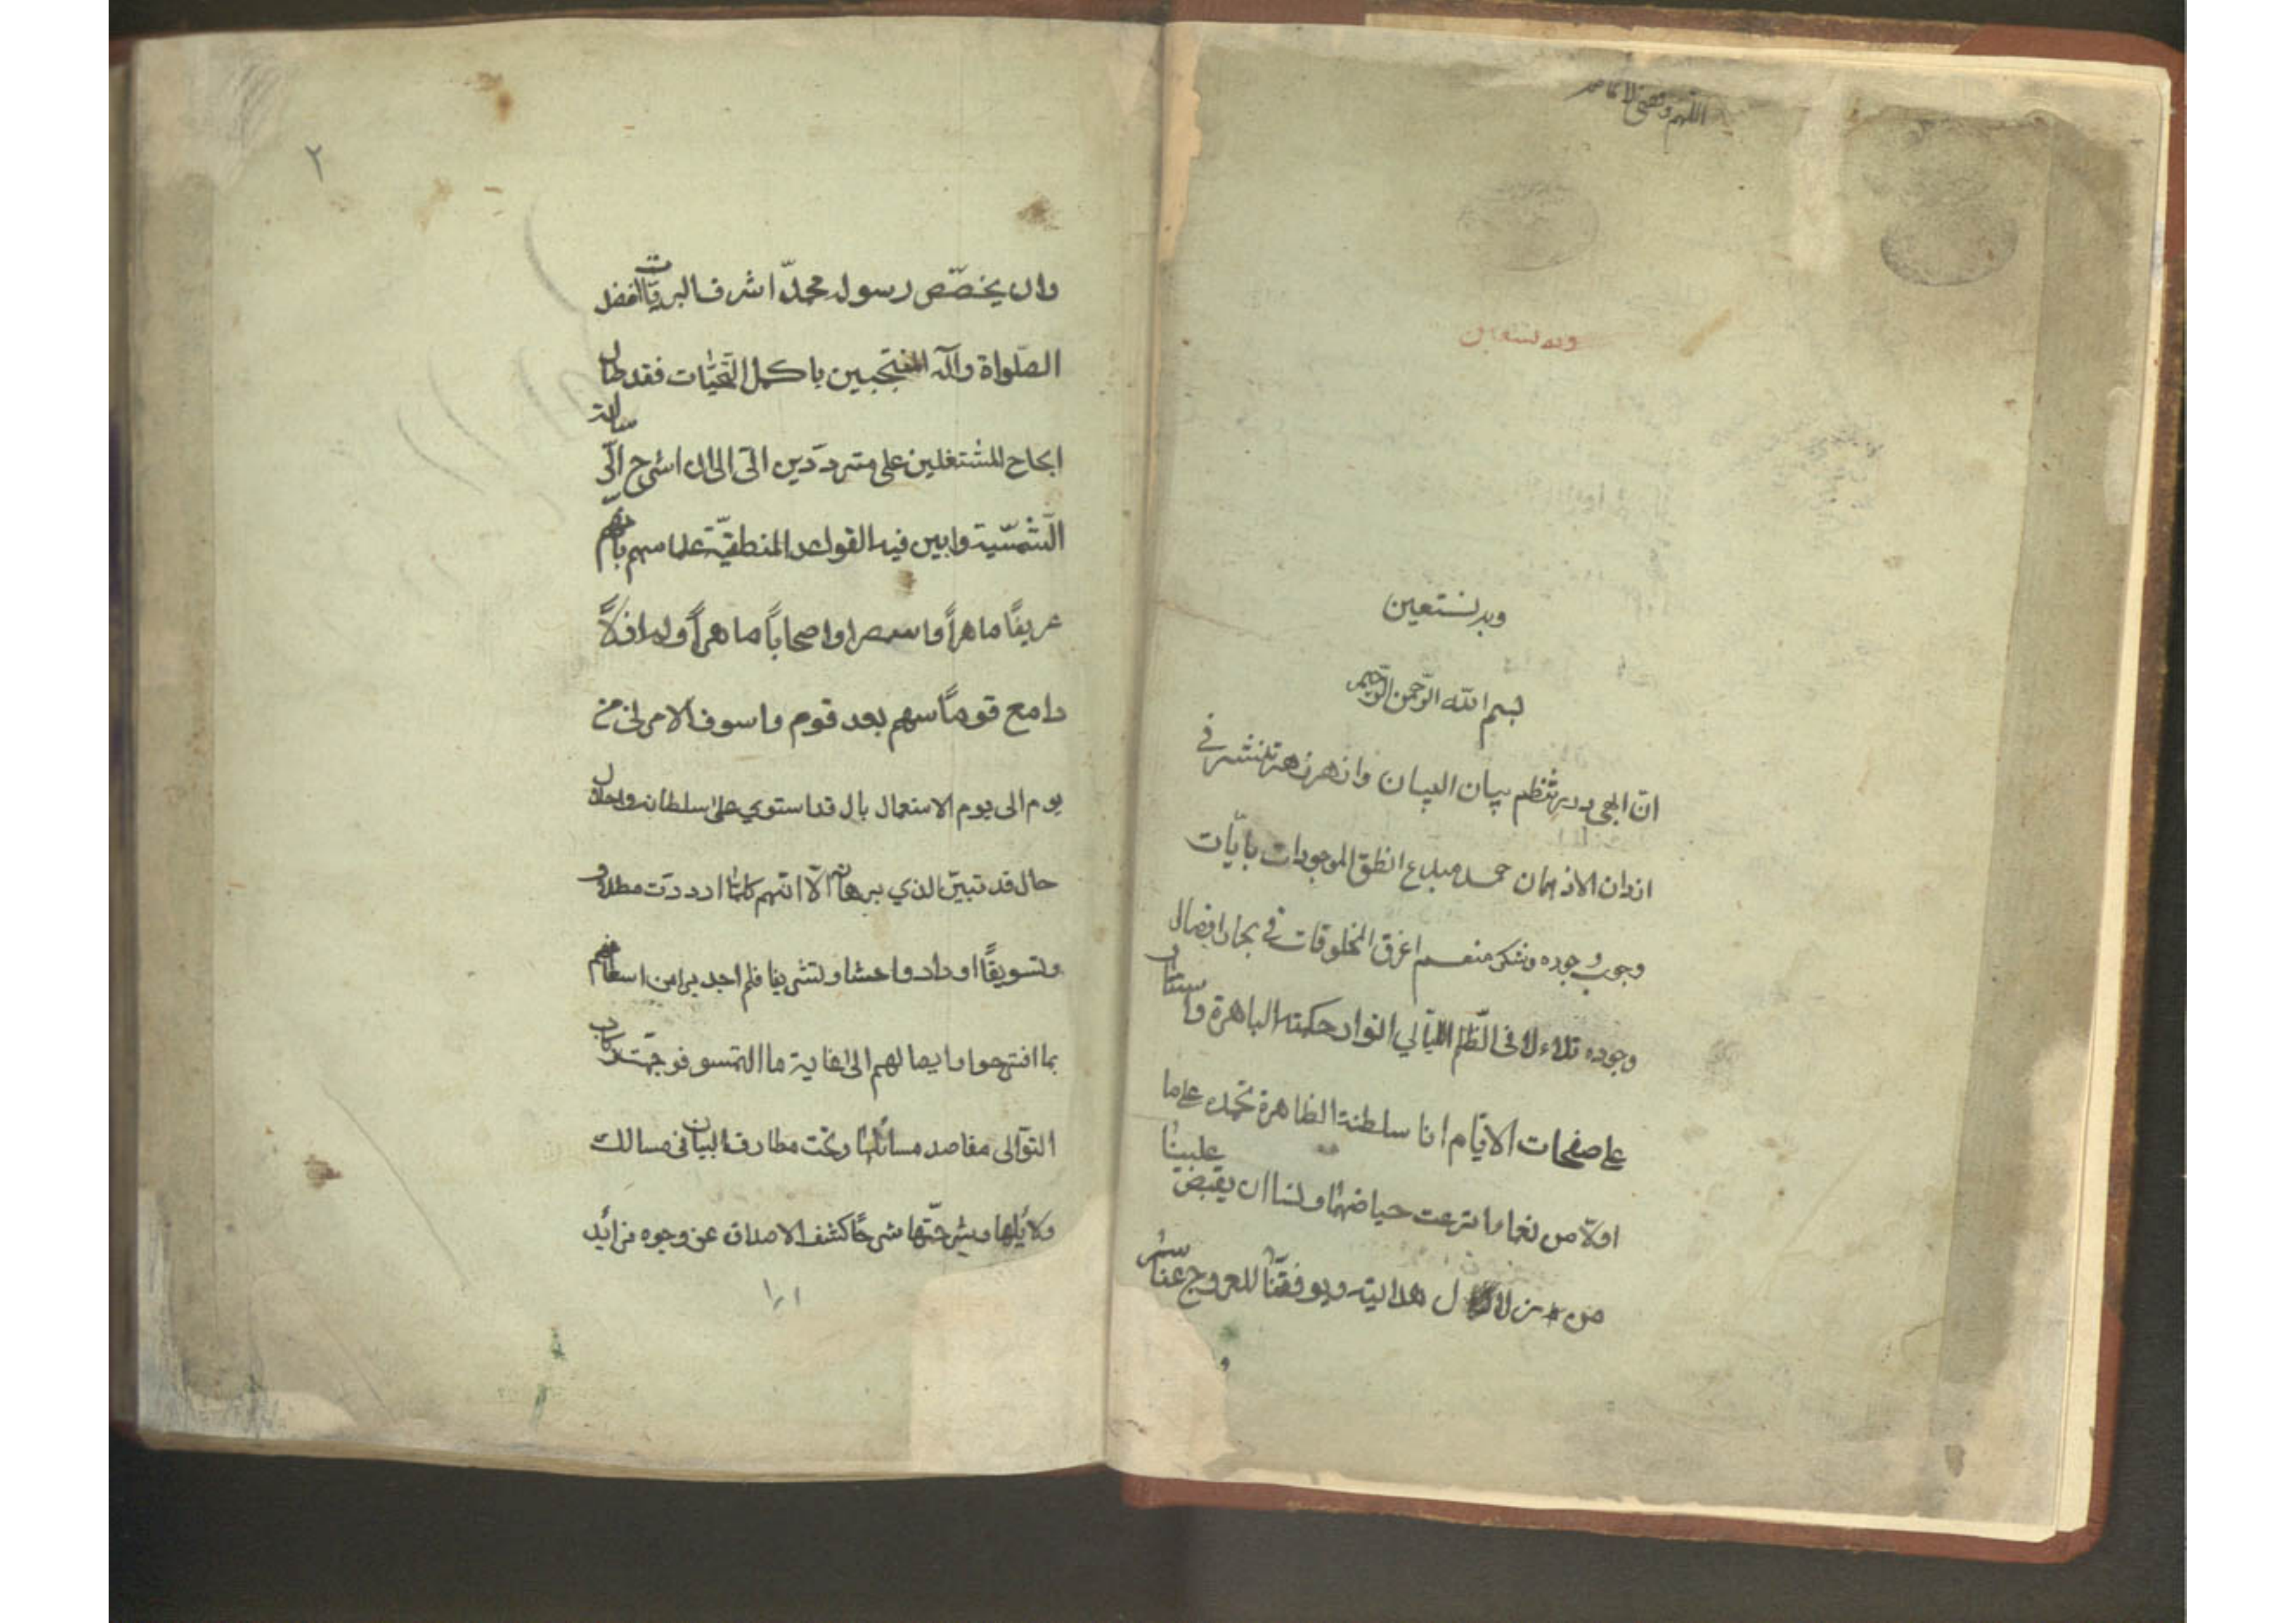 وبه نستعين
وبه نستعين
بسم الله الرّحمن الرّحيم
انّ ابهى درر تنظم ببيان البيان وازهر زهر تنثر في
اردان الاذهان حمد مبدع انطق الموجودات بايّات
وجوب وجوده وشكر منعم اغرق المخلوقات في بحار افضال
وجوده تلاءلا في الظّلم الليّالي انوار حكمته الباهرة و
على صفحات الايّام اثا سلطنة الظاهرة نحمده على ما
اولانا من نعما ما ترعت حياضها ولسا ان يقبض علينا
من زلال هدايته ويوفقنّا للعروج
وان يخصّص رسول محمدّ اشرف البريّات افضل
الصّلواة وآله المنتجبين باكمل التّحيّات فقد طال
الحاح المشتغلين على متردّدين الىّ الى ان اشرح الرّسالة
الشّمسّية وابين فيه القواعد المنطقيّة علما منهم بانهم
عريفًا ماهراً واصحاباً ماهراً ولم ازل
دامع قوماً منهم بعد قوم واسوف الامر من
يوم الى يوم الاشتعمال بال قد استوى على سلطانه واحلال
حال قد تبيّن الذي برهانه الّا انّهم كلمّا ازددت مطلا و
وتسويفًا ازدادوا حشا وتشريفا فلم اجد بدا من اسعافهم
بما افتتحوا وايصالهم الى غاية ما التمسو فوجهّت ركاب
النوّالى مقاصد مسائلها وتحت مطارف البيان فى مسالك
ولايلها وشرحتّها شرحًا كشف الاصداف عن وجوه فرائد